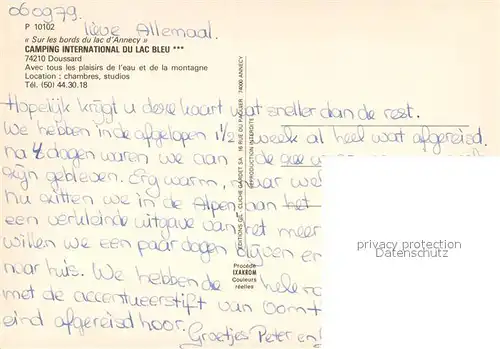 060979.
lieve Allemaal.
P 10102
« Sur les bords du lac d'Annecy »
CAMPING INTERNATIONAL DU LAC BLEU ***
74210 Doussard
Avec tous les plaisirs de l'eau et de la montagne
Location : chambres, studios
Tél. (50) 44.30.18
Hopelijk krijgt u deze kaart wat sneller dan de rest.
We hebben in de afgelopen 1½ week al heel wat afgereisd.
na 4 dagen waren we aan de
zijn gebleven. Erg warm, maar we
Nu zitten we in de Alpen aan het
een verkleinde uitgave van het meer
willen we een paar dagen blijven en
naar huis. We hebben de hele
met de accentueerstift van oom
eind afgereisd hoor. Groetjes Peter en
EDITIONS GIL - CLICHÉ GARDET SA 16 RUE DU PAQUIER 74000 ANNECY
REPRODUCTION INTERDITE
Procédé
IXAKROM
Couleurs
réelles
privacy protection
Datenschutz